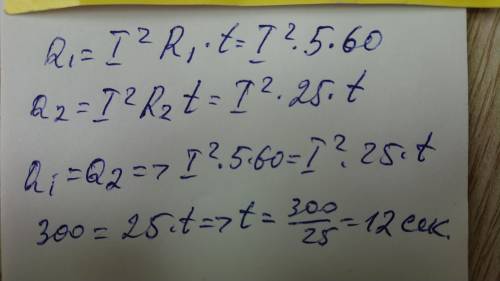 Q₁ = I² R₁ · t = I² · 5 · 60
Q₂ = I² R₂ t = I² · 25 · t
Q₁ = Q₂ => I² · 5 · 60 = I² · 25 · t
300 = 25 · t => t = 300/25 = 12 сек.